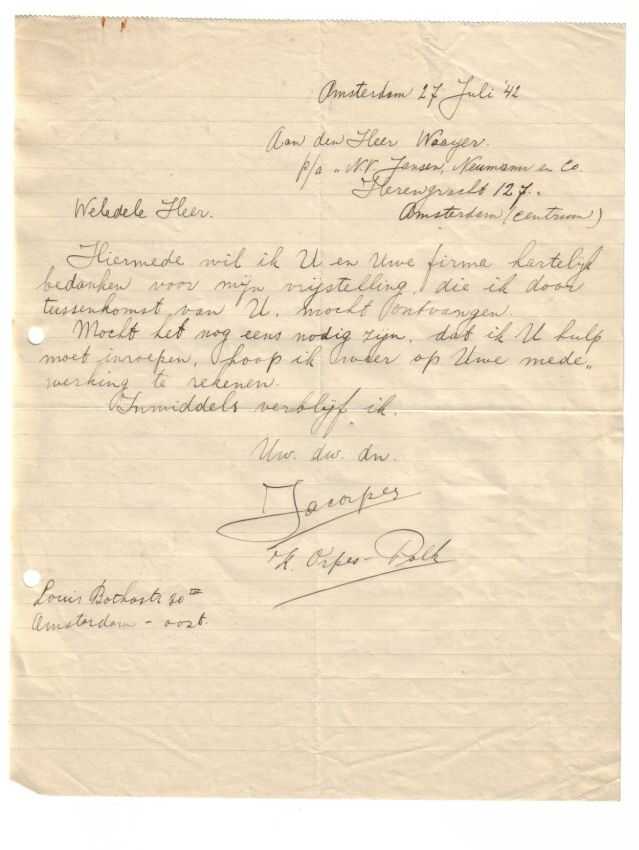 Amsterdam 27 Juli '42
Aan den Heer Waayer.
p/a „N.V. Jansen, Neumann en Co.
Herengracht 127.
Weledele Heer. Amsterdam (centrum)
Hiermede wil ik U en Uwe firma hartelijk
bedanken voor mijn vrijstelling, die ik door
tussenkomst van U, mocht ontvangen.
Mocht het nog eens nodig zijn, dat ik U hulp
moet inroepen, hoop ik weer op Uwe mede„
werking te rekenen.
Inmiddels verblijf ik.
Uw. dw. dn.
Jac Orpes
Orpes-Polk
Louis Bothastr 20 III
Amsterdam - oost.